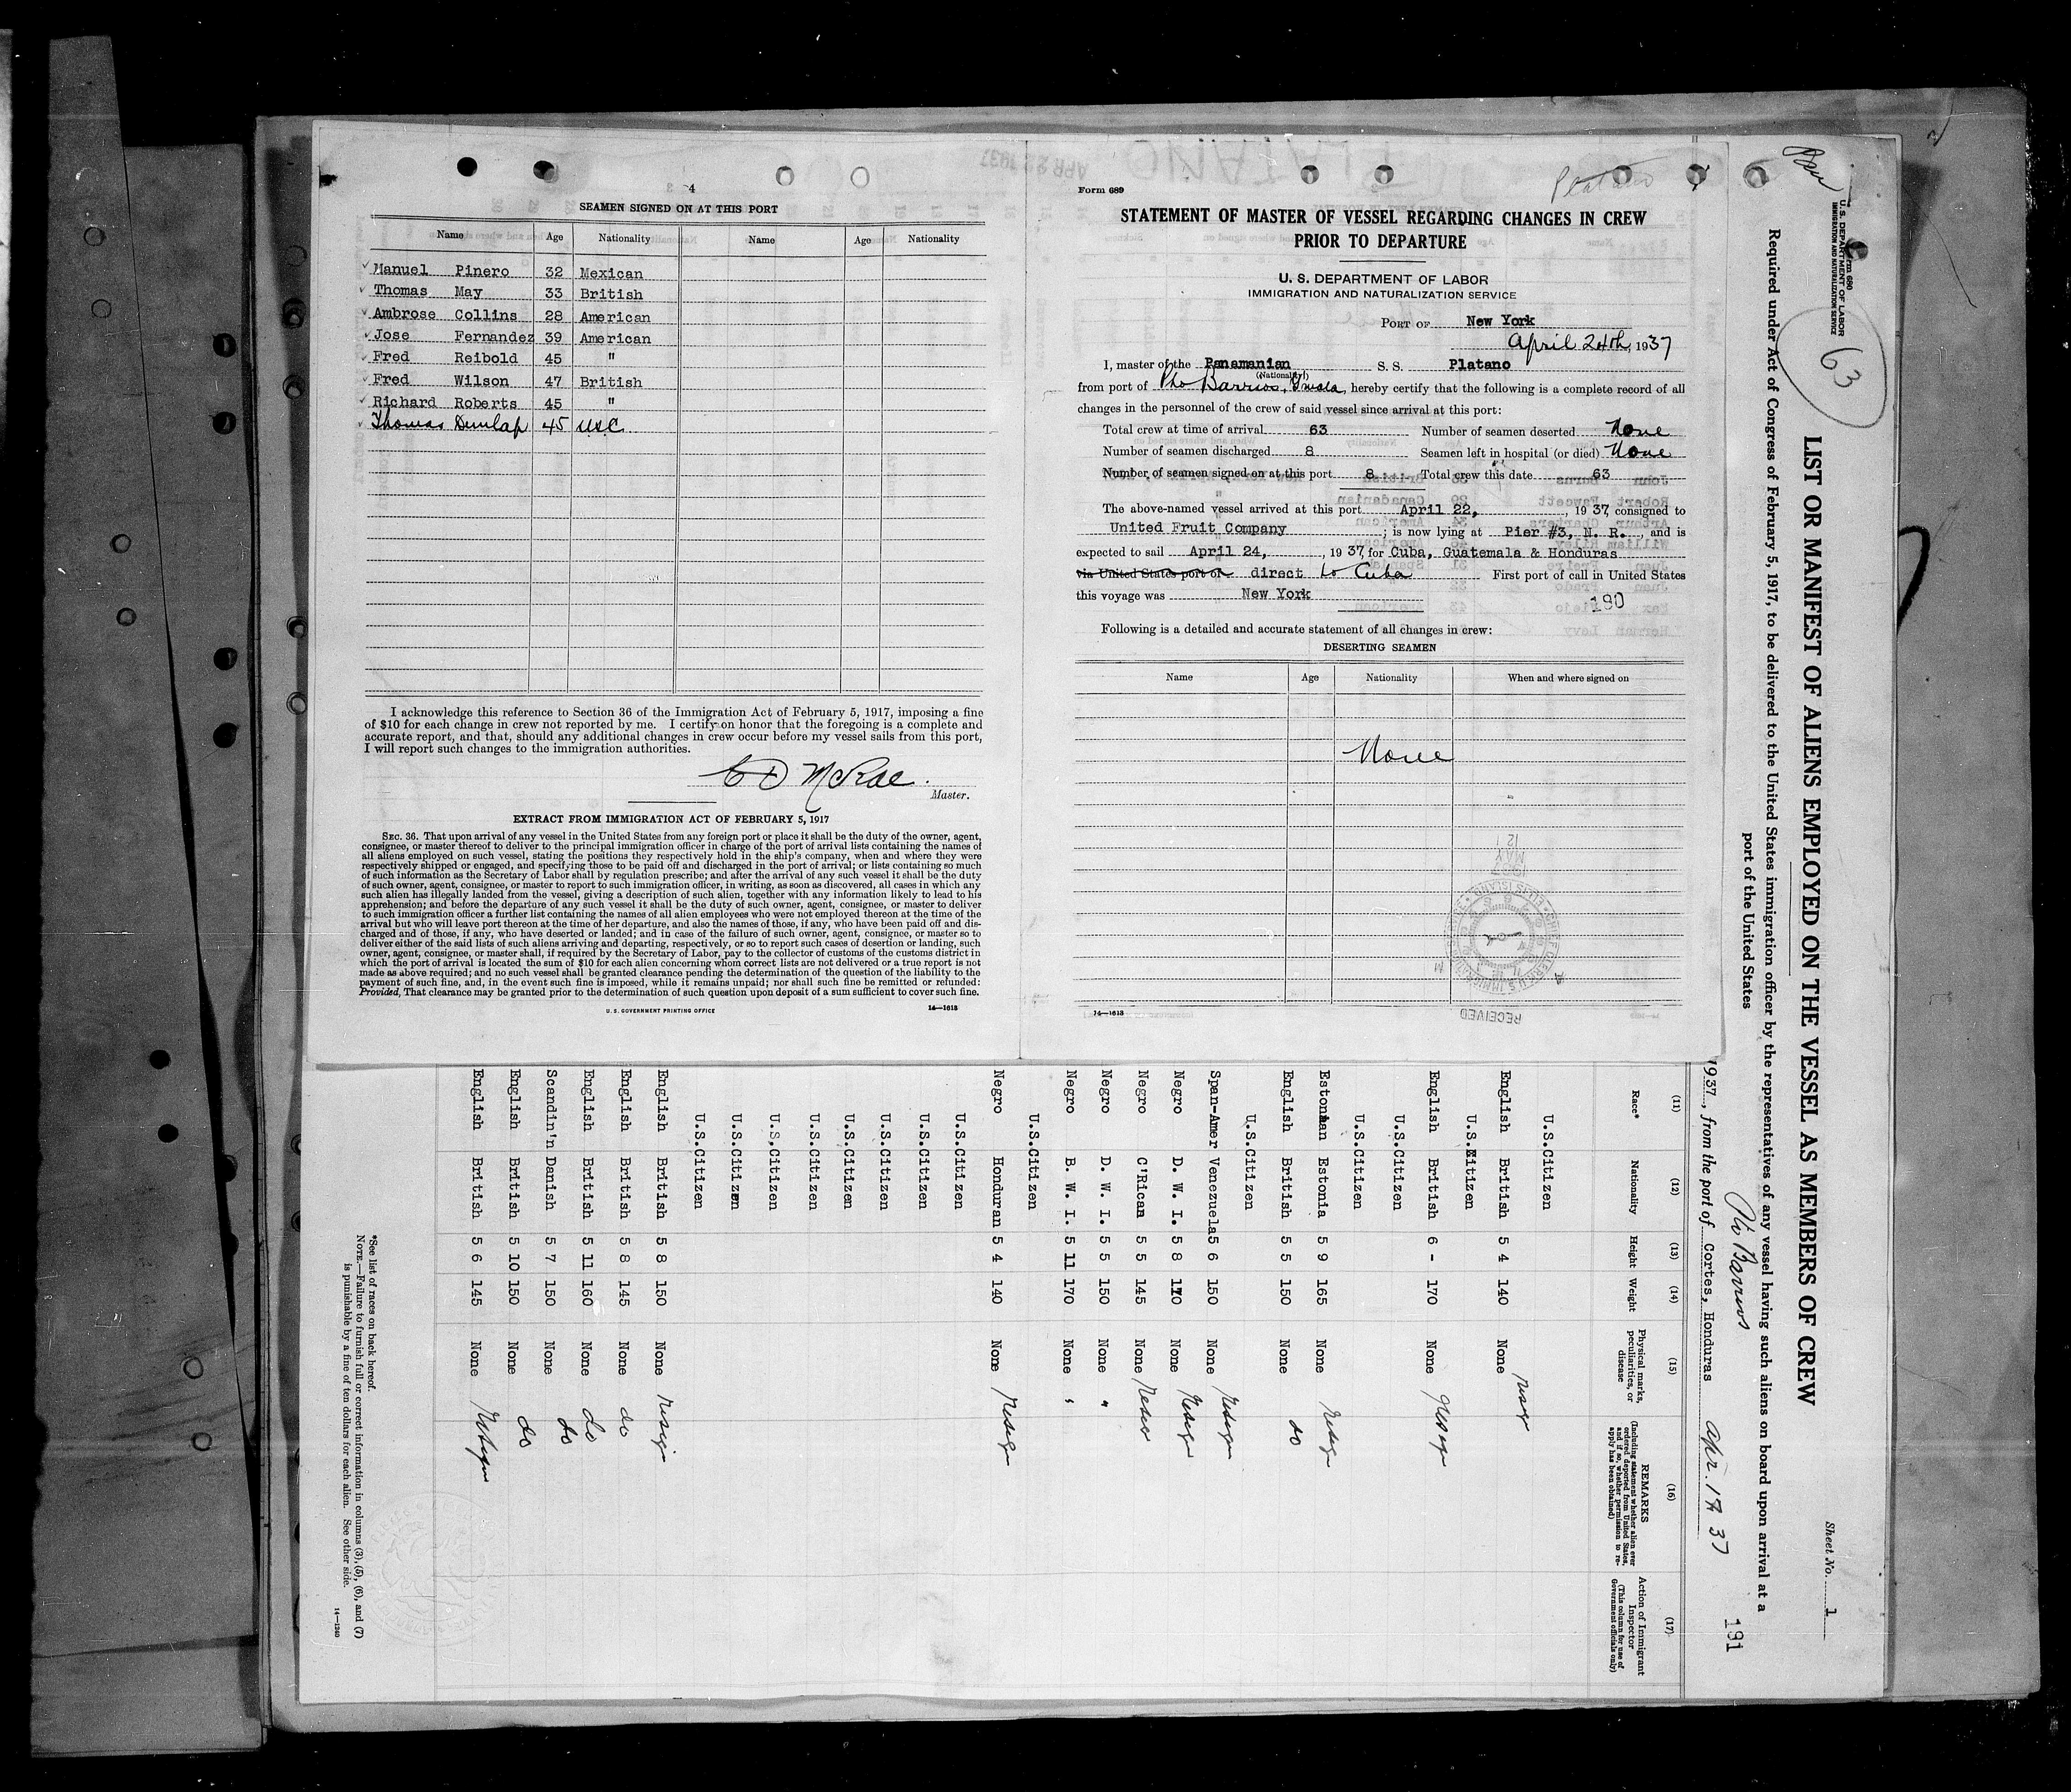 4
SEAMEN SIGNED ON AT THIS PORT
Name Age Nationality Name Age Nationality
Manuel Pinero 32 Mexican
Thomas May 33 British
Ambrose Collins 28 American
Jose Fernandez 39 American
Fred Reibold 45 "
Fred Wilson 47 British
Richard Roberts 45 "
Thomas Dunlap 45 USC
I acknowledge this reference to Section 36 of the Immigration Act of February 5, 1917, imposing a fine
of $10 for each change in crew not reported by me. I certify on honor that the foregoing is a complete and
accurate report, and that, should any additional changes in crew occur before my vessel sails from this port,
I will report such changes to the immigration authorities.
C D McRae.
Master.
EXTRACT FROM IMMIGRATION ACT OF FEBRUARY 5, 1917
SEC. 36. That upon arrival of any vessel in the United States from any foreign port or place it shall be the duty of the owner, agent,
consignee, or master thereof to deliver to the principal immigration officer in charge of the port of arrival lists containing the names of
all aliens employed on such vessel, stating the positions they respectively hold in the ship's company, when and where they were
respectively shipped or engaged, and specifying those to be paid off and discharged in the port of arrival; or lists containing so much
of such information as the Secretary of Labor shall by regulation prescribe; and after the arrival of any such vessel it shall be the duty
of such owner, agent, consignee, or master to report to such immigration officer, in writing, as soon as discovered, all cases in which any
such alien has illegally landed from the vessel, giving a description of such alien, together with any information likely to lead to his
apprehension; and before the departure of any such vessel it shall be the duty of such owner, agent, consignee, or master to deliver
to such immigration officer a further list containing the names of all alien employees who were not employed thereon at the time of the
arrival but who will leave port thereon at the time of her departure, and also the names of those, if any, who have been paid off and dis-
charged and of those, if any, who have deserted or landed; and in case of the failure of such owner, agent, consignee, or master so to
deliver either of the said lists of such aliens arriving and departing, respectively, or so to report such cases of desertion or landing, such
owner, agent, consignee, or master shall, if required by the Secretary of Labor, pay to the collector of customs of the customs district in
which the port of arrival is located the sum of $10 for each alien concerning whom correct lists are not delivered or a true report is not
made as above required; and no such vessel shall be granted clearance pending the determination of the question of the liability to the
payment of such fine, and, in the event such fine is imposed, while it remains unpaid; nor shall such fine be remitted or refunded:
Provided, That clearance may be granted prior to the determination of such question upon deposit of a sum sufficient to cover such fine.
U. S. GOVERNMENT PRINTING OFFICE 14—1613
Form 689
Platano
STATEMENT OF MASTER OF VESSEL REGARDING CHANGES IN CREW
PRIOR TO DEPARTURE
U. S. DEPARTMENT OF LABOR
IMMIGRATION AND NATURALIZATION SERVICE
PORT OF New York
April 24th, 1937
I, master of the Panamanian S. S. Platano
(Nationality)
from port of Pto Barrios, Gmala, hereby certify that the following is a complete record of all
changes in the personnel of the crew of said vessel since arrival at this port:
Total crew at time of arrival 63 Number of seamen deserted None
Number of seamen discharged 8 Seamen left in hospital (or died) None
Number of seamen signed on at this port 8 Total crew this date 63
The above-named vessel arrived at this port April 22, 1937, consigned to
United Fruit Company ; is now lying at Pier #3, N. R., and is
expected to sail April 24, 1937, for Cuba, Guatemala & Honduras
via United States port of direct to Cuba First port of call in United States
this voyage was New York
190
Following is a detailed and accurate statement of all changes in crew:
DESERTING SEAMEN
Name Age Nationality When and where signed on
None
RECEIVED
14—1613
Form 680
U. S. DEPARTMENT OF LABOR
IMMIGRATION AND NATURALIZATION SERVICE
63
Sheet No. 1
LIST OR MANIFEST OF ALIENS EMPLOYED ON THE VESSEL AS MEMBERS OF CREW
Required under Act of Congress of February 5, 1917, to be delivered to the United States immigration officer by the representatives of any vessel having such aliens on board upon arrival at a
port of the United States
191
Pto Barrios
1937, from the port of Cortes, Honduras Apr. 17 37
(11) (12) (13) (14) (15) (16) (17)
Race* Nationality Height Weight Physical marks, peculiarities, or disease REMARKS (Including statement whether alien ever ordered deported from United States, and if so, whether permission to re-apply has been obtained) Action of Immigrant Inspector (This column for use of Government officials only)
U.S.Citizen
English British 5 4 140 None
U.S.Citizen
English British 6 - 170 None
U.S.Citizen
U.S.Citizen
Estonian Estonia 5 9 165 None
English British 5 5 150 None do
U.S.Citizen
Span-Amer Venezuela 5 6 150 None
Negro D. W. I. 5 8 170 None
Negro C'Rican 5 5 145 None
Negro D. W. I. 5 5 150 None "
Negro B. W. I. 5 11 170 None "
U.S.Citizen
Negro Honduran 5 4 140 None
U.S.Citizen
U.S.Citizen
U.S.Citizen
U.S.Citizen
U.S.Citizen
U.S.Citizen
U.S.Citizen
U.S.Citizen
English British 5 8 150 None
English British 5 8 145 None do
English British 5 11 160 None do
Scandin'n Danish 5 7 150 None do
English British 5 10 150 None do
English British 5 6 145 None
*See list of races on back hereof.
NOTE.—Failure to furnish full or correct information in columns (3), (5), (6), and (7)
is punishable by a fine of ten dollars for each alien. See other side.
14—1240